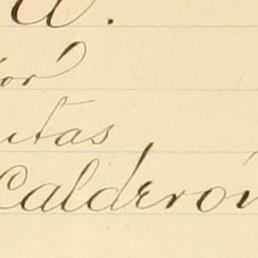 a.
or
utas
Calderón